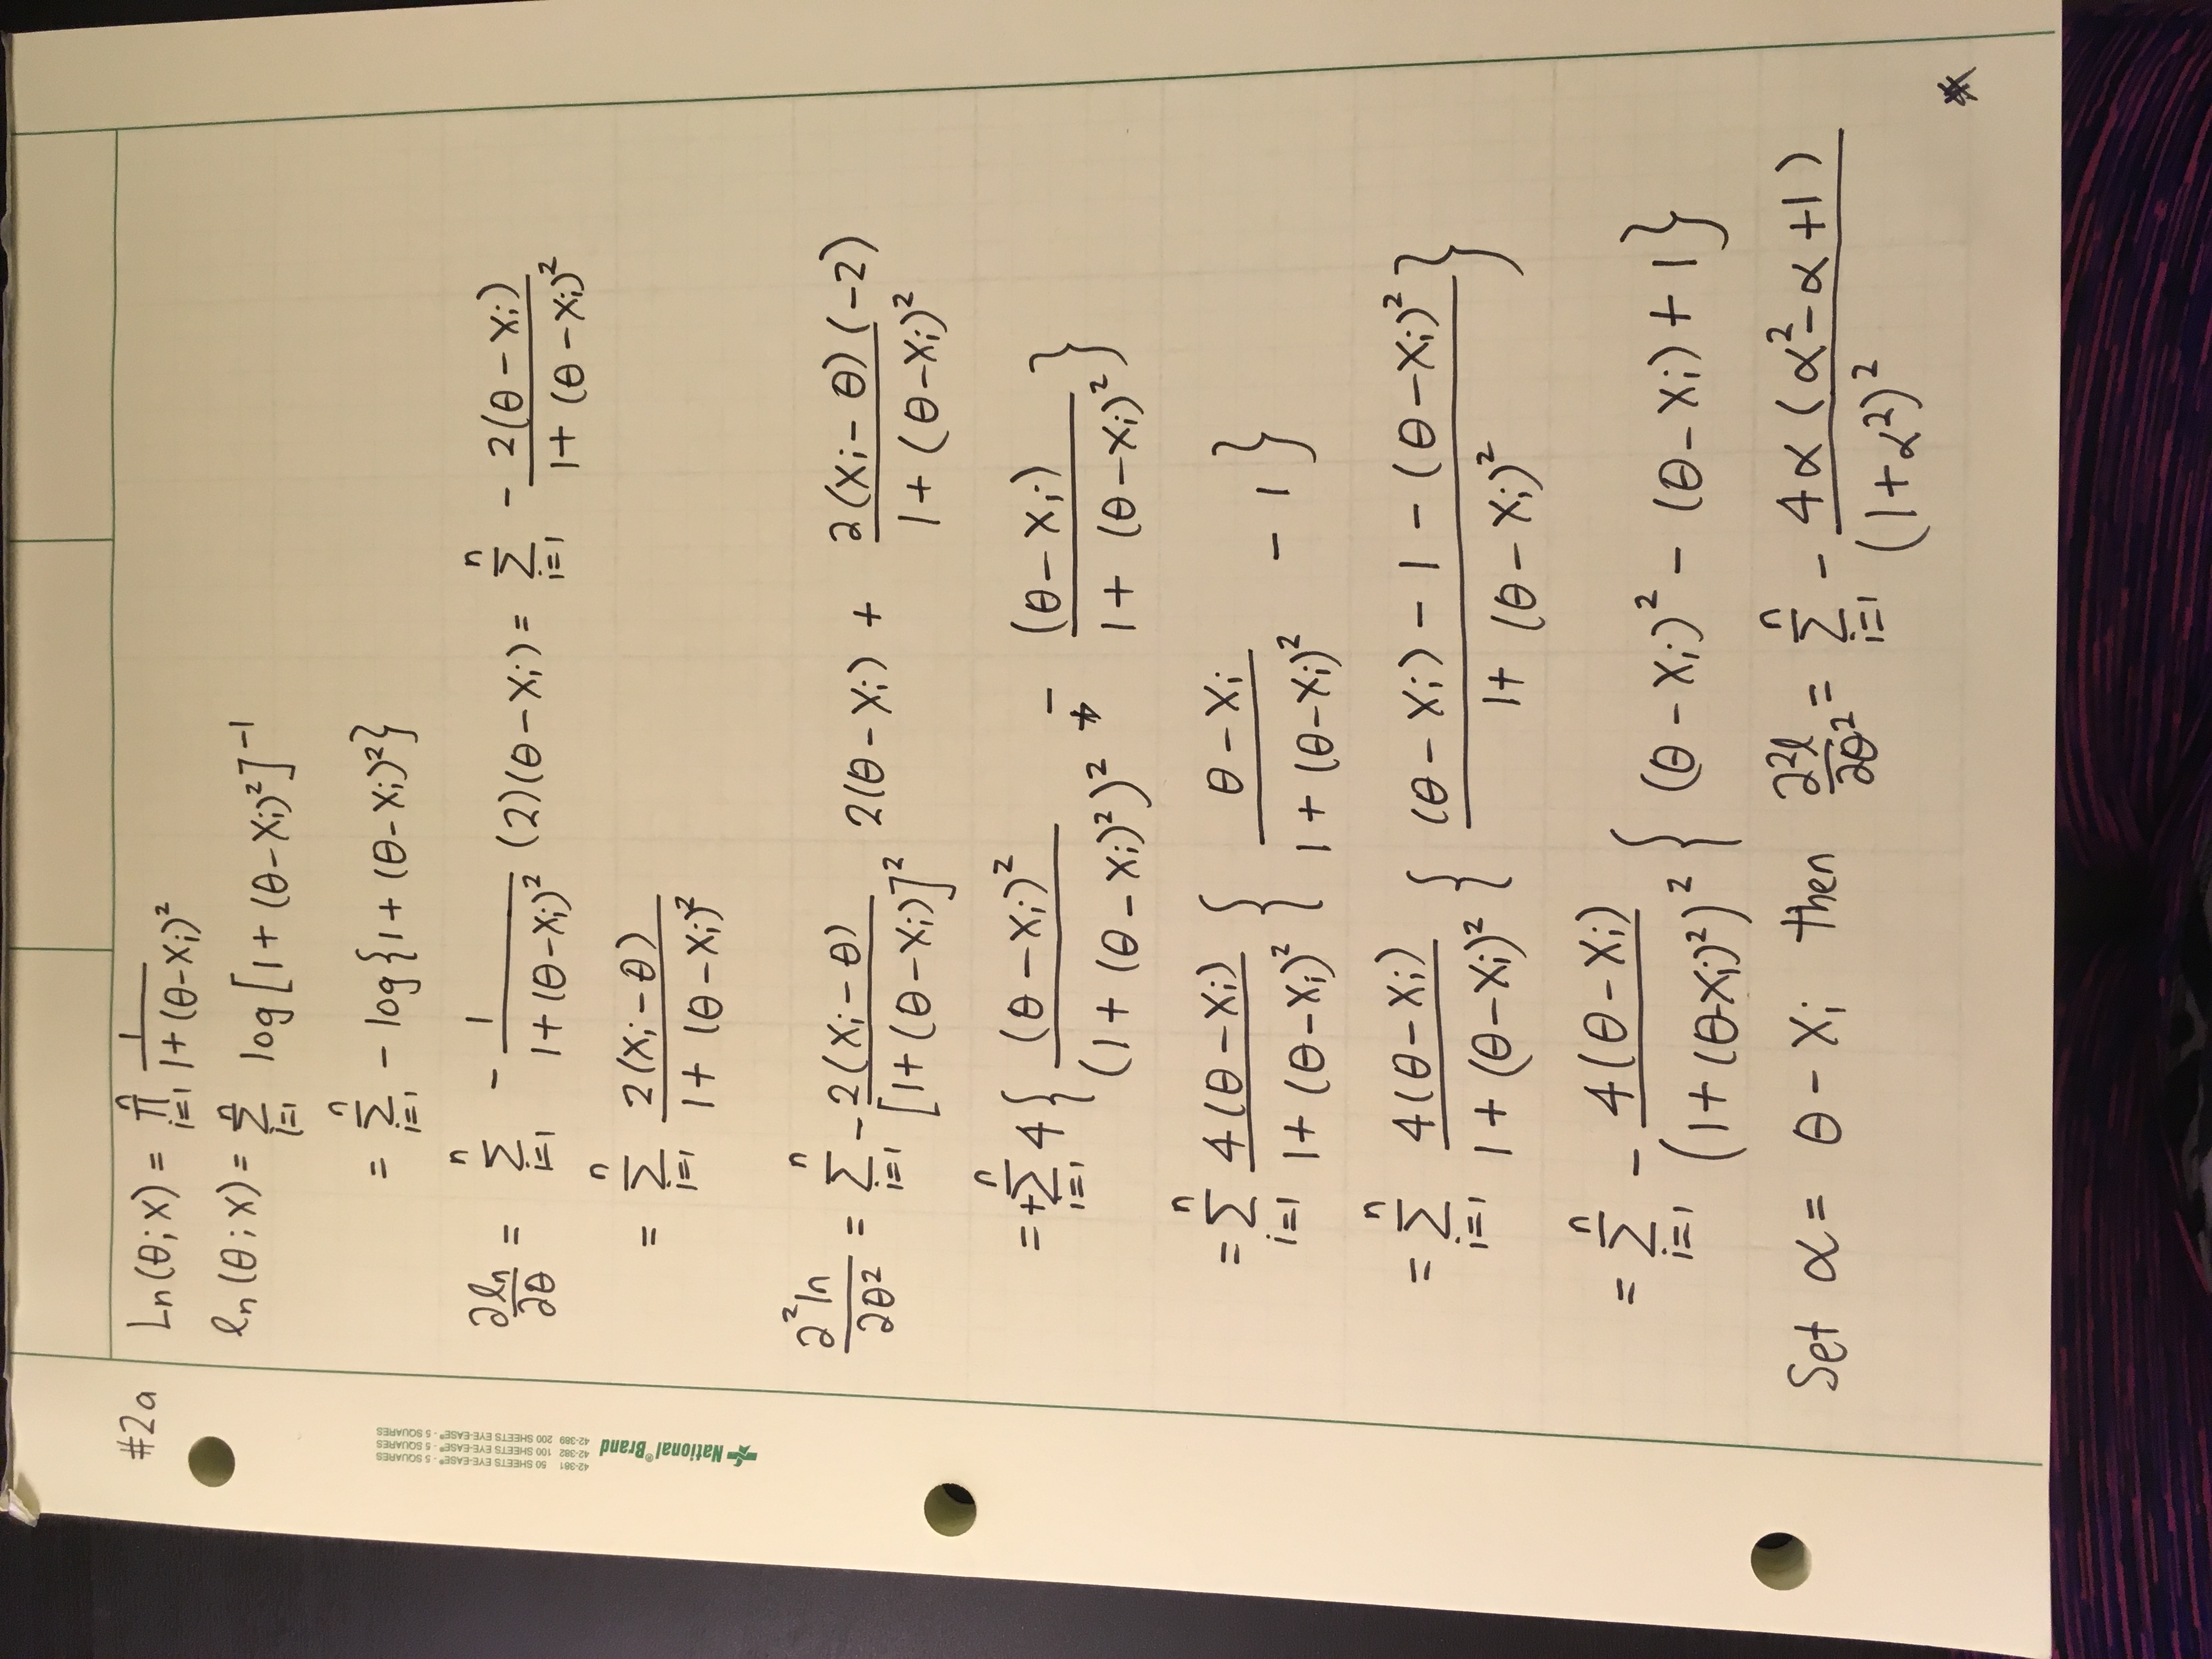 #2a Ln(θ;X) = ∏_{i=1}^{n} 1/(1+(θ-Xi)²)
ℓn(θ;X) = Σ_{i=1}^{n} log[1+(θ-Xi)²]⁻¹
= Σ_{i=1}^{n} - log{1+(θ-Xi)²}
∂ℓn/∂θ = Σ_{i=1}^{n} - 1/(1+(θ-Xi)²) (2)(θ-Xi) = Σ_{i=1}^{n} - 2(θ-Xi)/(1+(θ-Xi)²)
= Σ_{i=1}^{n} 2(Xi-θ)/(1+(θ-Xi)²)
∂²ln/∂θ² = Σ_{i=1}^{n} - 2(Xi-θ)/[1+(θ-Xi)]² 2(θ-Xi) + 2(Xi-θ)(-2)/(1+(θ-Xi)²)
= +Σ_{i=1}^{n} 4{ (θ-Xi)²/(1+(θ-Xi)²)² - (θ-Xi)/(1+(θ-Xi)²) }
= Σ_{i=1}^{n} 4(θ-Xi)/(1+(θ-Xi)²) { (θ-Xi)/(1+(θ-Xi)²) - 1 }
= Σ_{i=1}^{n} 4(θ-Xi)/(1+(θ-Xi)²) { ((θ-Xi)-1-(θ-Xi)²)/(1+(θ-Xi)²) }
= Σ_{i=1}^{n} - 4(θ-Xi)/(1+(θ-Xi)²)² { (θ-Xi)²-(θ-Xi)+1 }
Set α = θ-Xi then ∂²ℓ/∂θ² = Σ_{i=1}^{n} - 4α(α²-α+1)/(1+α²)²
National® Brand
42-381 50 SHEETS EYE-EASE® - 5 SQUARES
42-382 100 SHEETS EYE-EASE® - 5 SQUARES
42-389 200 SHEETS EYE-EASE® - 5 SQUARES